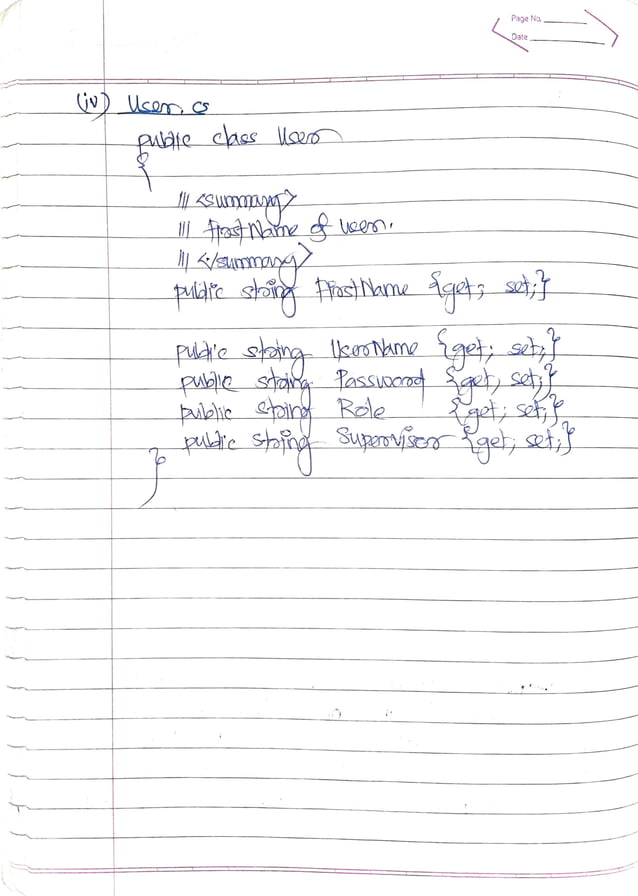 Page No.
Date
(iv) User.cs
public class User
{
/// <summary>
/// FirstName of user.
/// </summary>
public string FirstName {get; set;}
public string UserName {get; set;}
public string Password {get; set;}
public string Role {get; set;}
public string Supervisor {get; set;}
}